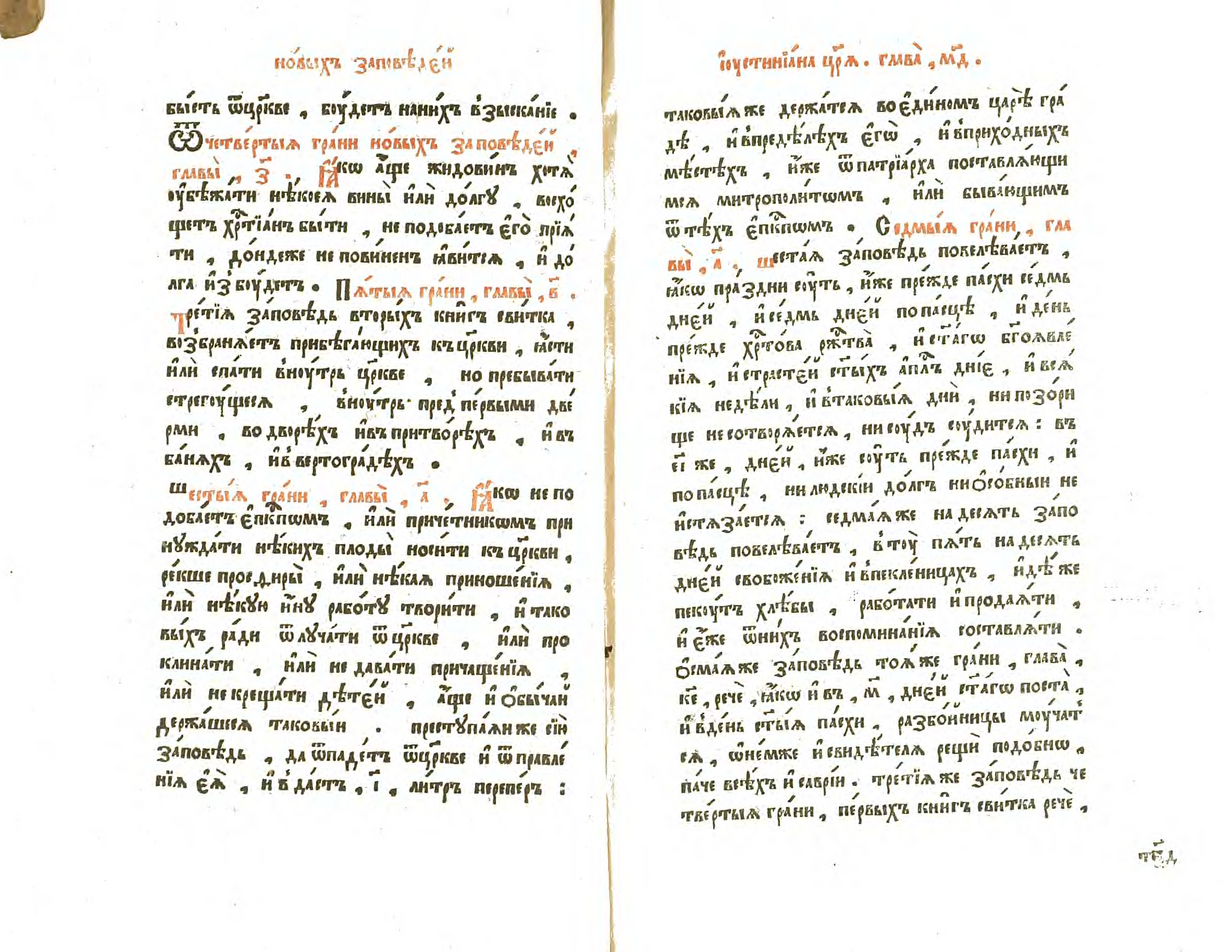 но́выхъ за́повѣде́й
бы́сть ѿцр҃кве , боу́детъ нани́хъ взыска́нїе .
Ѿ четве́ртыѧ гра́ни но́выхъ за́повѣде́й ,
главы̀ , з҃ . Ꙗ҆́кѡ а҆́ще жидови́нъ хотѧ̀
оу҆бѣжа́ти нѣ́коеѧ вины̀ и҆лѝ до́лгꙋ , восхо́
щетъ хрⷭ҇тїа́нъ бы́ти , не подоба́етъ є҆го̀ прїѧ́
ти , до́ндеже не пови́ненъ ꙗ҆ви́тсѧ , и҆ до́
лга и҆збоу́детъ . Пѧ́тыѧ гра́ни , главы̀ , в҃ .
Тре́тїѧ за́повѣдь вторы́хъ кни́гъ сви́тка ,
возбранѧ́етъ прибѣга́ющихъ къ цр҃кви , ꙗ҆́сти
и҆лѝ спа́ти вноу́трь цр҃кве , но пребыва́ти
стрегоу́щесѧ , вноу́трь пред пе́рвыми две́
рми , во дворѣ́хъ и҆въ притво́рѣхъ , и҆ въ
ба́нѧхъ , и҆в вертогра́дѣхъ .
Шесты́ѧ гра́ни , главы̀ , а҃ . Ꙗ҆́кѡ не по
доба́етъ є҆пⷭ҇кпѡмъ , и҆лѝ приче́тникѡмъ при
нꙋжда́ти нѣ́кихъ плоды̀ носи́ти къ цр҃кви ,
ре́кше просѳиры̀ , и҆лѝ нѣ́каѧ приноше́нїѧ ,
и҆лѝ нѣ́кꙋю и҆́нꙋ рабо́тꙋ твори́ти , и҆ тако
вы́хъ ра́ди ѿлꙋча́ти ѿ цр҃кве , и҆лѝ про
клина́ти , и҆лѝ не дава́ти причаще́нїѧ ,
и҆лѝ не креща́ти дѣте́й , а҆́ще и҆ ѻ҆бы́чай
держа́шесѧ таковы́и . престꙋпа́ѧиже сїю̀
за́повѣдь , да ѿпаде́тъ ѿцр҃кве и҆ ѿ правле́
нїѧ є҆ѧ̀ , и҆ вда́стъ , і҃ , ли́тръ перпе́ръ :
і҆оустинїа́на цр҃ѧ . глава̀ , м҃д .
таковы́ѧже держа́тсѧ во є҆ди́номъ ца́рѣ гра́
дѣ , и҆ впредѣ́лѣхъ є҆гѡ̀ , и҆ вприхо́дныхъ
мѣ́стѣхъ , и҆́же ѿ патрїа́рха поставлѧ́ющи
мсѧ митрополи́тѡмъ , и҆лѝ быва́ющимъ
ѿ тѣ́хъ є҆пⷭ҇кпѡмъ . Седмы́ѧ гра́ни , гла
вы̀ , а҃ . шеста́ѧ за́повѣдь повелѣва́етъ ,
ꙗ҆́кѡ пра́здни соу́ть , и҆́же пре́жде па́схи се́дмь
дне́й , и҆ се́дмь дне́й по па́сцѣ , и҆ де́нь
пре́жде хрⷭ҇то́ва ржⷭ҇тва̀ , и҆ ст҃а́гѡ бг҃оѧвле́
нїѧ , и҆ страсте́й ст҃ы́хъ а҆пⷭ҇лъ дні́е , и҆ всѧ́
кїѧ недѣ́ли , и҆ втаковы́ѧ дни̑ , ни позо́ри
ще не сотворѧ́етсѧ , ни соу́дъ соу́дитсѧ : въ
є҃і же , дне́й , и҆́же соу́ть пре́жде па́схи , и҆
по па́сцѣ , ни людскі́и до́лгъ ни ѻ҆со́бныи не
и҆стѧза́етсѧ : седма́ѧже на десѧть за́по
вѣдь повелѣва́етъ , в тоу̀ пѧ́ть на десѧть
дне́й свобоже́нїѧ и҆ впекле́ницахъ , и҆дѣ́же
пекоу́тъ хлѣ́бы , рабо́тати и҆ продаѧ́ти ,
и҆ є҆́же ѿни́хъ воспомина́нїѧ составлѧ́ти .
Ѻ҆сма́ѧже за́повѣдь тоѧ́же гра́ни , глава̀ ,
к҃е , речѐ , ꙗ҆́кѡ и҆ въ , м҃ , дне́й ст҃а́гѡ поста̀ ,
и҆ вде́нь ст҃ы́ѧ па́схи , разбо́йницы моу́чат
сѧ , ѡ҆не́мже и҆ свидѣ́телѧ рещѝ подо́бнѡ ,
па́че всѣ́хъ и҆саврі́и . тре́тїѧже за́повѣдь че
тве́ртыѧ гра́ни , пе́рвыхъ кни́гъ сви́тка речѐ ,